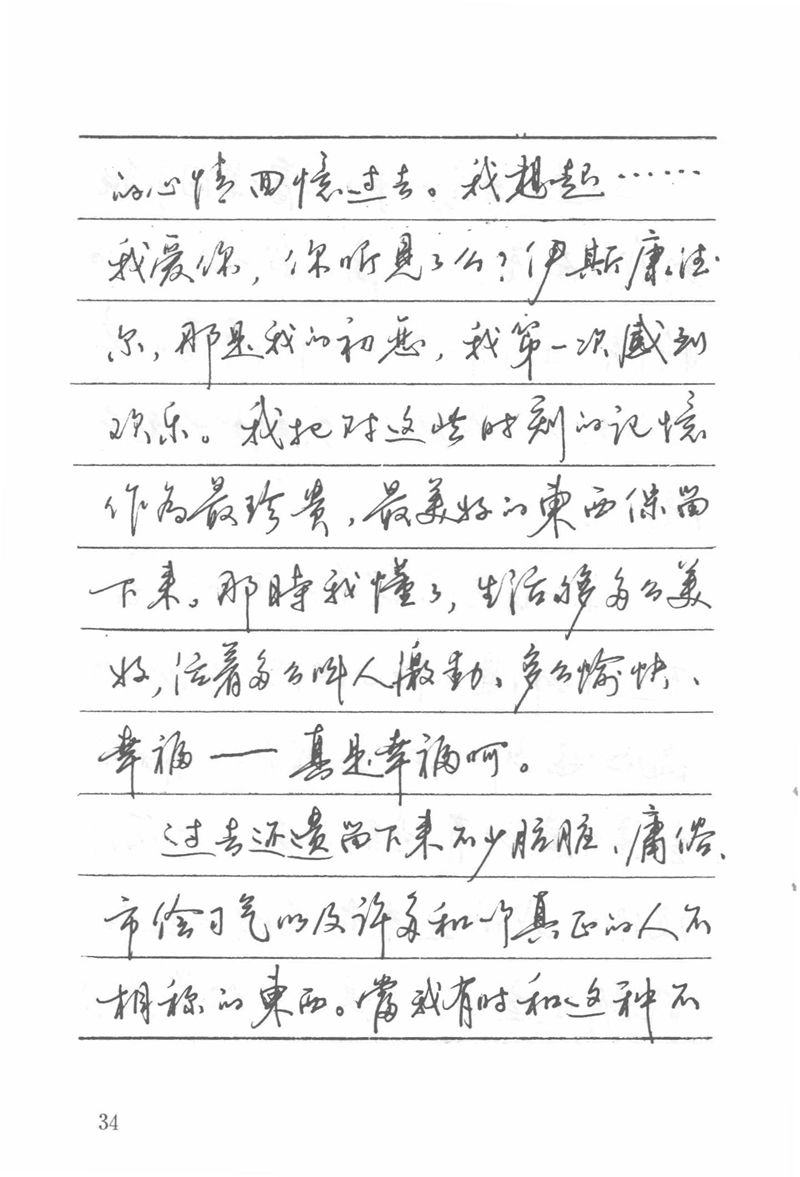 的心情回憶过去。我想起……
我爱你，你听見了么？伊斯康德
尔，那是我的初恋，我第一次感到
欢乐。我把对这些时刻的记憶
作为最珍贵，最美好的東西保留
下来。那時我懂了，生活够多么美
好，活着多么叫人激動、多么愉快、
幸福——真是幸福呵。
过去还遗留下来不少肮脏、庸俗、
市侩习气以及许多和一个真正的人不
相称的東西。當我有时和这种不
34